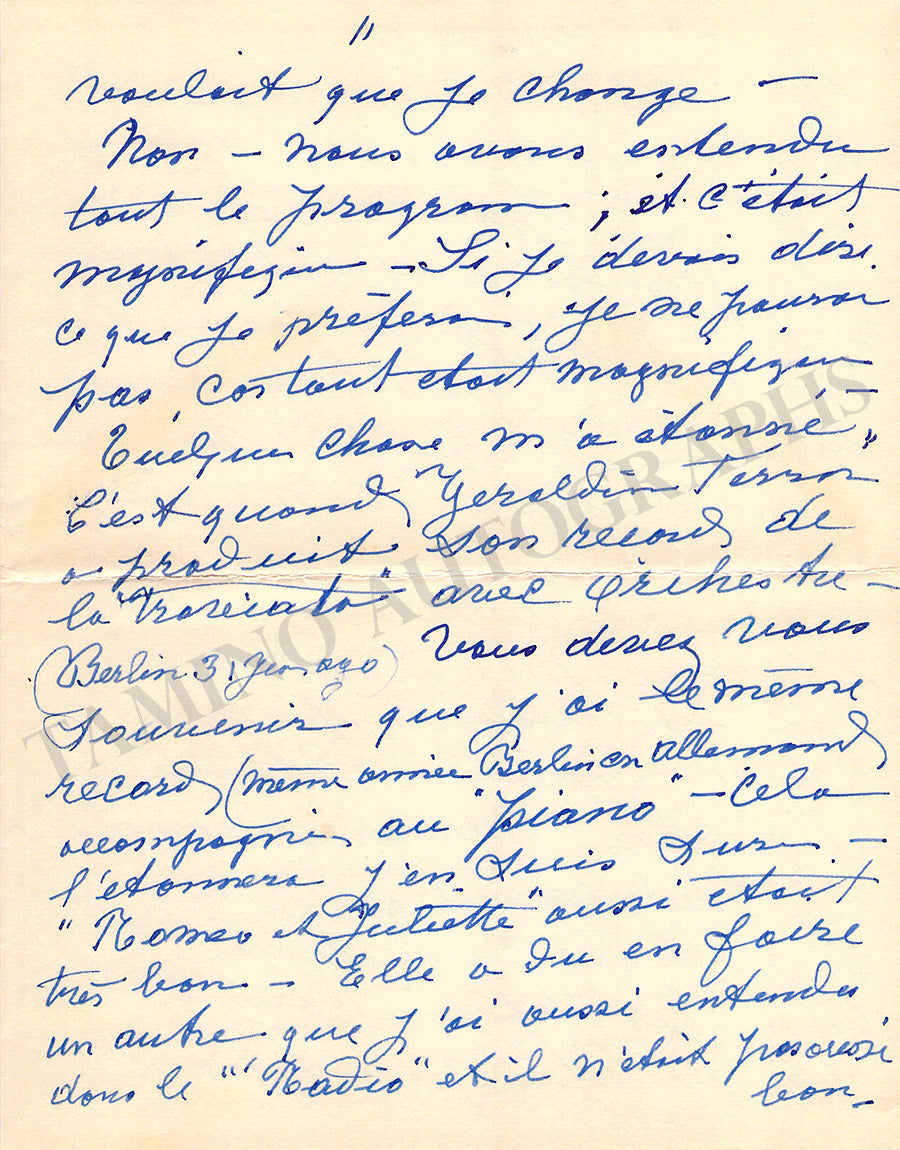 "
voulait que je change —
Non — nous avons entendu
tout le program ; et c'était
magnifique — Si je devais dire
ce que je préferai, je ne pourai
pas, car tout etait magnifique —
Quelque chose m'a étonné,
C'est quand "Geraldin Farrar"
a produit son record de
la "Traviata" avec Orchestre —
(Berlin 3, years ago) Vous devez vous
souvenir que j'ai le même
record (même année Berlin en Allemand)
accompagnie au "piano" — Cela
l'etonnera j'en suis sure —
"Romeo et Juliette" aussi etait
très bon — Elle a du en faire
un autre que j'ai aussi entendu
dans le "Radio" et il n'était pas aussi
bon —
TAMINO AUTOGRAPHS